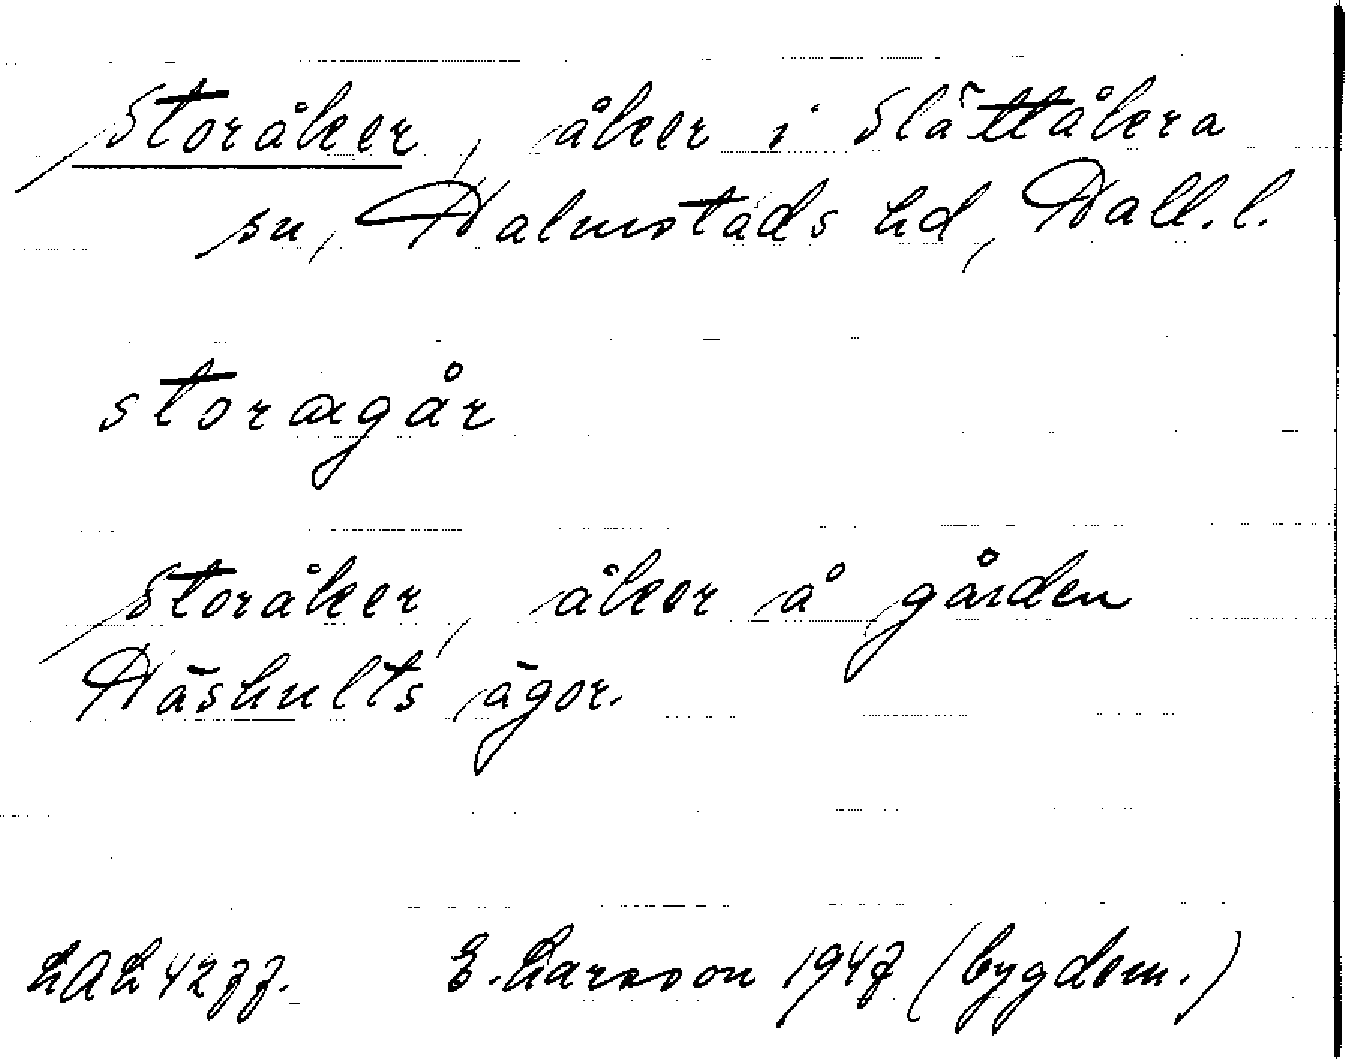 Storåker, åker i Slättåkra
sn, Halmstads hd, Hall.l.
storægår
Storåker, åker å gården
Häshults ägor.
LAL 4277. E. Larsson 1947 (bygdem.)